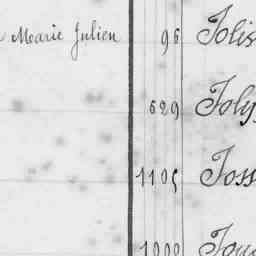 Marie Julien 96 Jolis
629 Joly
1105 Joss
1000 Jou